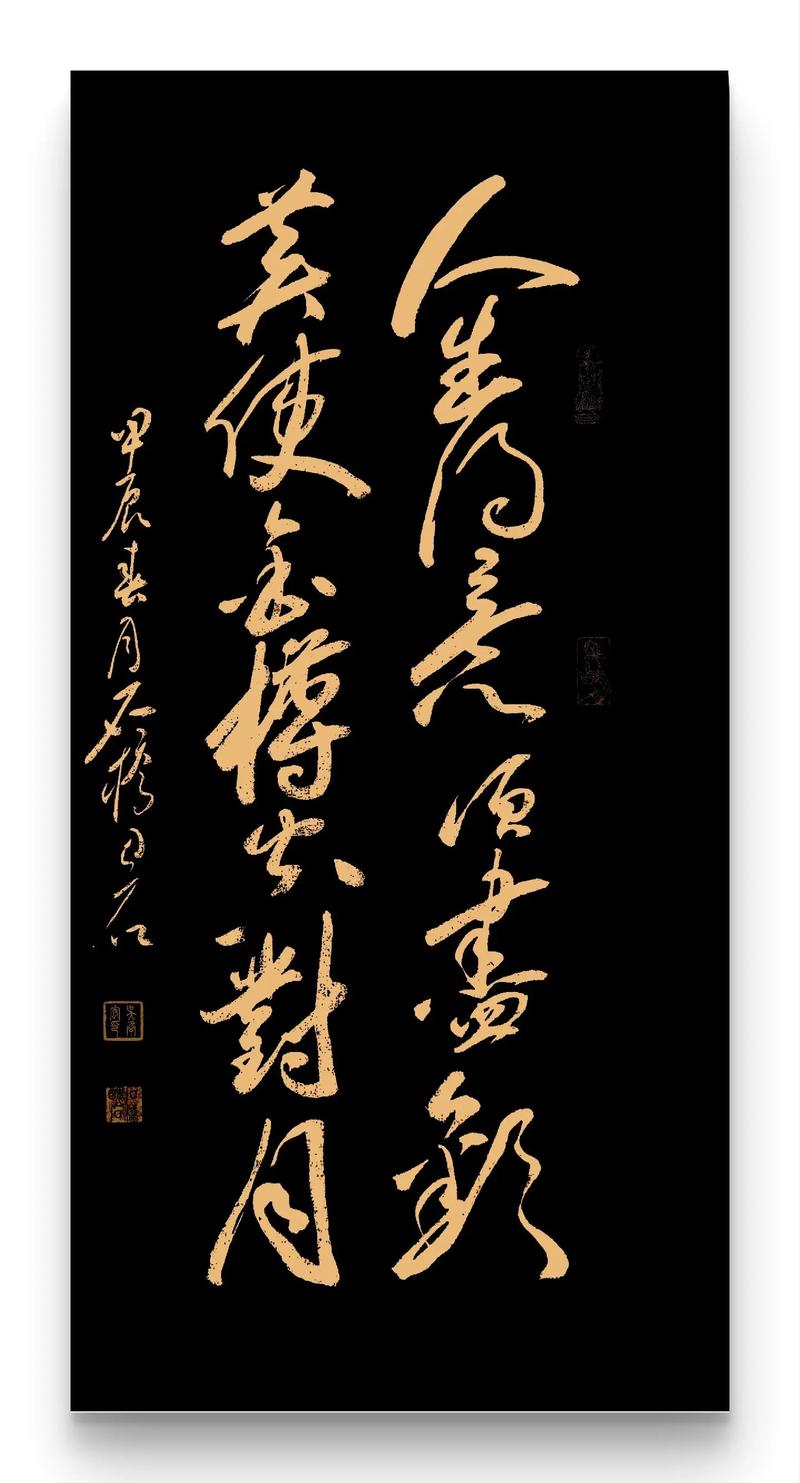 人生得意須盡歡
莫使金樽空對月
甲辰春月石橋